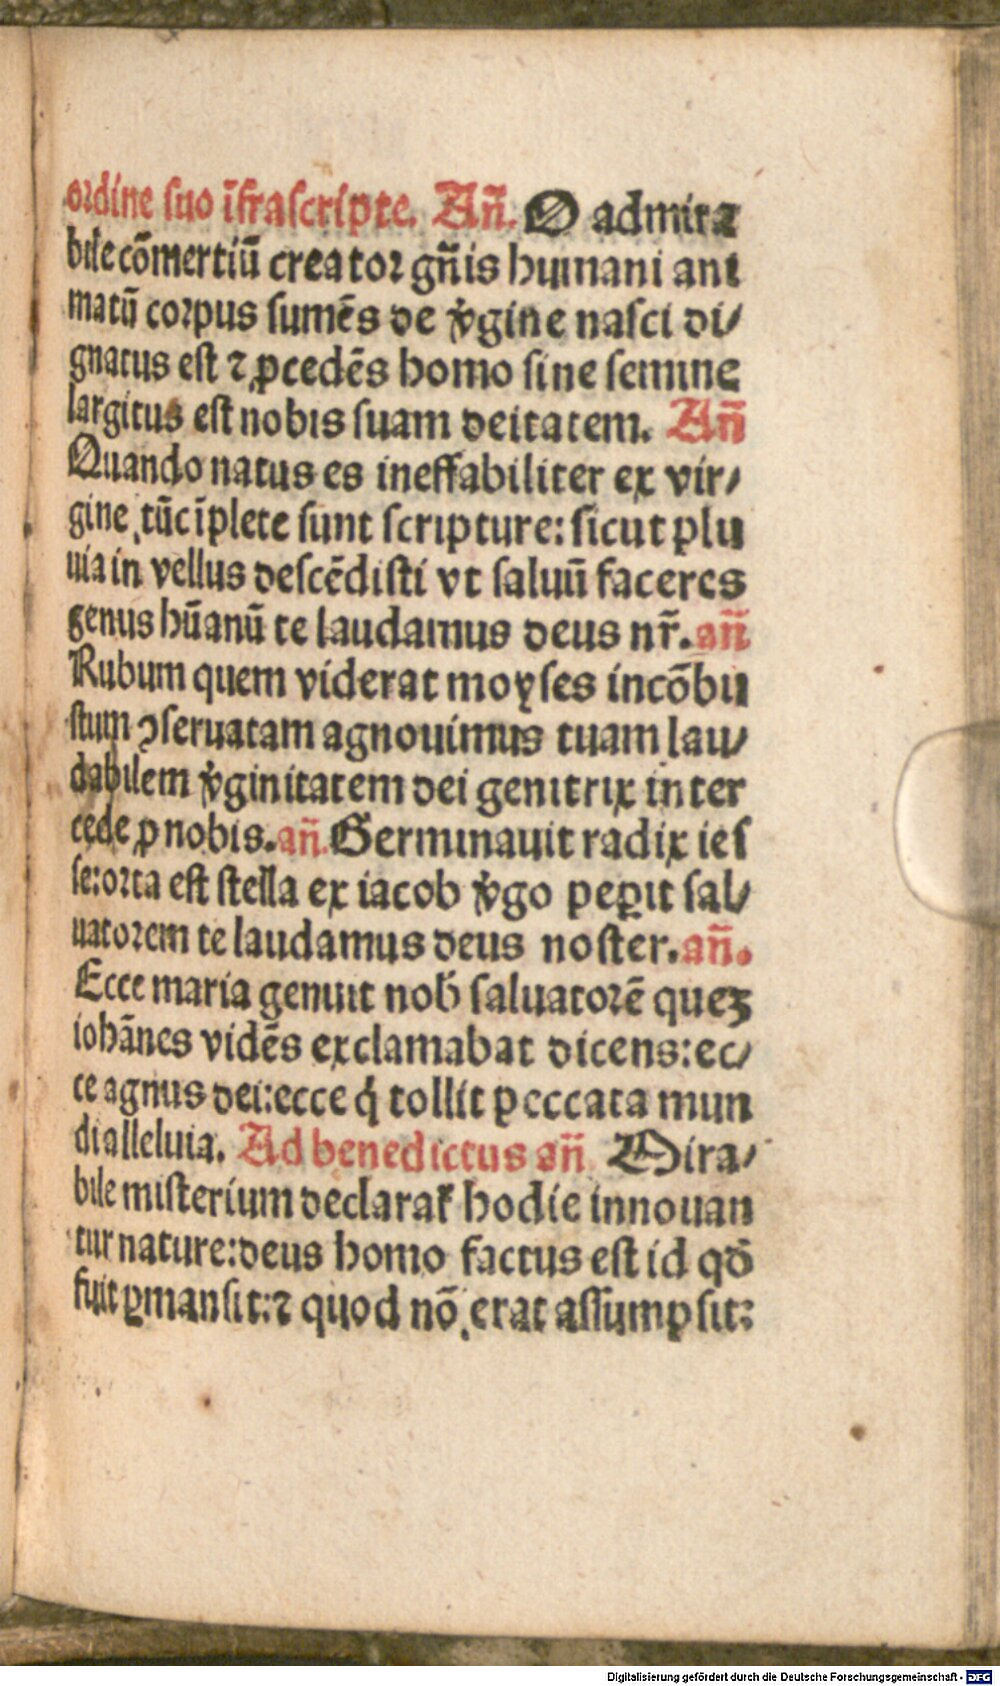 ordine suo īfrascripte. Añ. O admira
bile cōmertiū creator gñis humani ani
matū corpus sumēs de v̾gine nasci di/
gnatus est ⁊ ꝓcedēs homo sine semine
largitus est nobis suam deitatem. Añ
Quando natus es ineffabiliter ex vir/
gine tūc īplete sunt scripture: sicut plu
uia in vellus descēdisti vt saluū faceres
genus hūanū te laudamus deus nr̄. añ
Rubum quem viderat moyses incōbu
stum ꝯseruatam agnouimus tuam lau/
dabilem v̾ginitatem dei genitrix inter
cede ꝓ nobis. añ. Germinauit radix ies
se: orta est stella ex iacob v̾go peꝑit sal/
uatorem te laudamus deus noster. añ.
Ecce maria genuit nob̄ saluatorē quez
iohānes vidēs exclamabat dicens: ec/
ce agnus dei: ecce q̇ tollit peccata mun
di alleluia. Ad benedictus añ Mira/
bile misterium declaraꝶ hodie innouan
tur nature: deus homo factus est id qď
fuit ꝑmansit: ⁊ quod nō erat assumpsit:
Digitalisierung gefördert durch die Deutsche Forschungsgemeinschaft - DFG